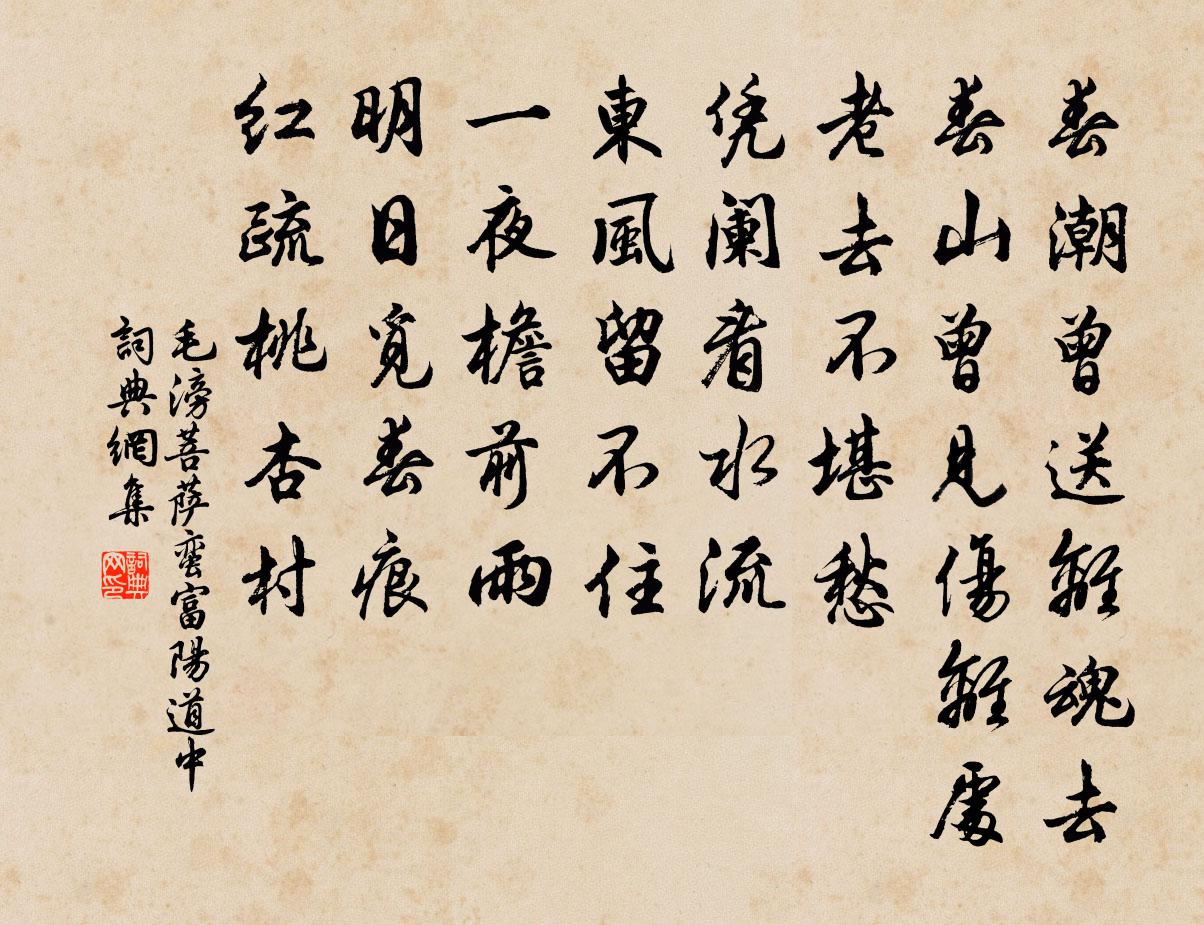 春潮曾送離魂去
春山曾見傷離處
老去不堪愁
凭阑看水流
東風留不住
一夜檐前雨
明日覓春痕
紅疏桃杏村
毛滂菩萨蛮富陽道中
詞典網集
詞典网印